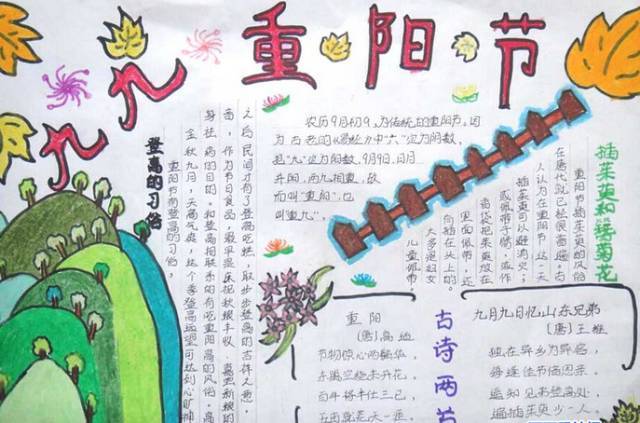 九九重阳节
登高的习俗
重阳节有登高的习俗,
金秋九月,天高气爽,这个季登高远望可达到心旷神
身祛病的目的。和登高相联系的有吃重阳高的风俗。高
面,作为节日食品,最早是庆祝秋粮丰收、喜尝新粮的
之后民间才有了登高吃糕,取步步登高的吉祥之意。
农历9月初9,为传统的重阳节。因
为古老的《易经》中“六”定为阴数,
把“九”定为阳数,9月9日,日月
并阳,两九相重,故
而叫“重阳”,也
叫“重九”。
插茱萸和簪菊花
重阳节插茱萸的风俗
在唐代就已经很普遍。古
人认为在重阳节这一天
插茱萸可以避消灾;
或佩带于臂,或作
香袋把茱萸放在
里面佩带,还
插在头上的。
大多是妇女
儿童佩带,
古诗两
重阳
(唐)高适
节物惊心两鬓华,
东篱空绕未开花。
百年将半仕三已,
五亩就荒天一涯
九月九日忆山东兄弟
(唐)王维
独在异乡为异客,
每逢佳节倍思亲。
遥知兄弟登高处,
遍插茱萸少一人。